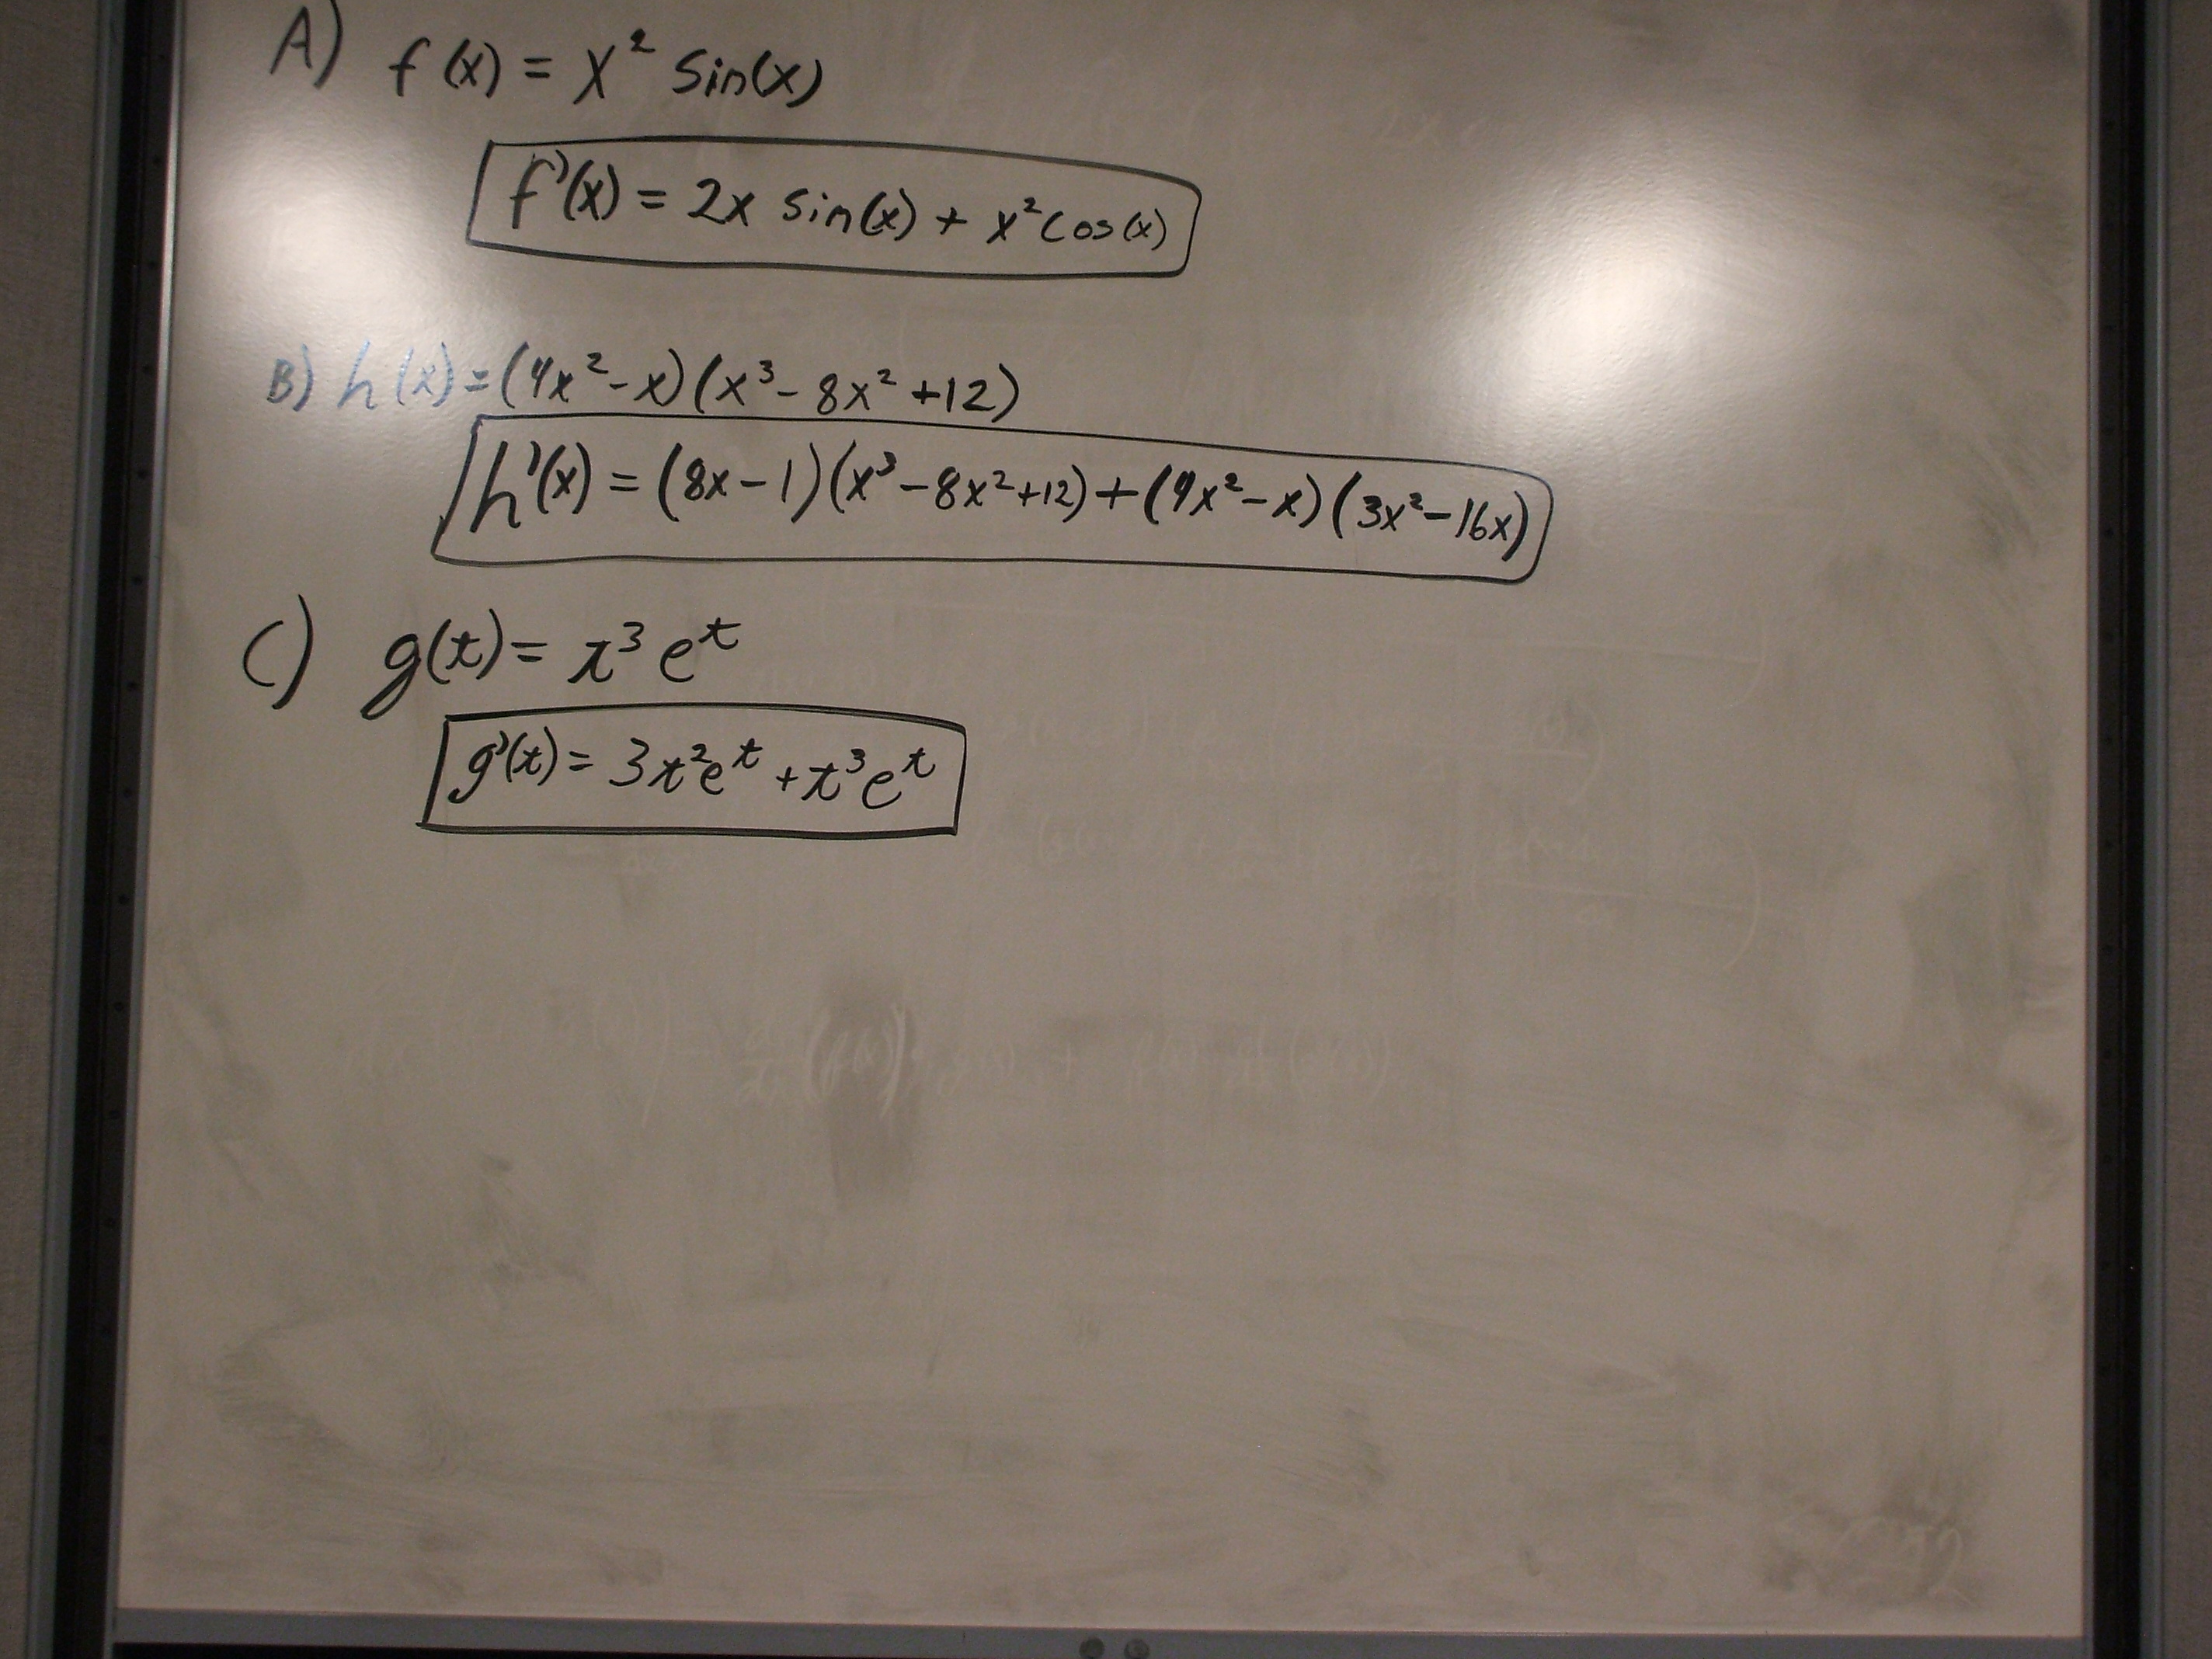 A) f(x) = x² sin(x)
f'(x) = 2x sin(x) + x² cos(x)
B) h(x) = (4x² - x)(x³ - 8x² + 12)
h'(x) = (8x - 1)(x³ - 8x² + 12) + (4x² - x)(3x² - 16x)
C) g(t) = t³ e^t
g'(t) = 3t² e^t + t³ e^t